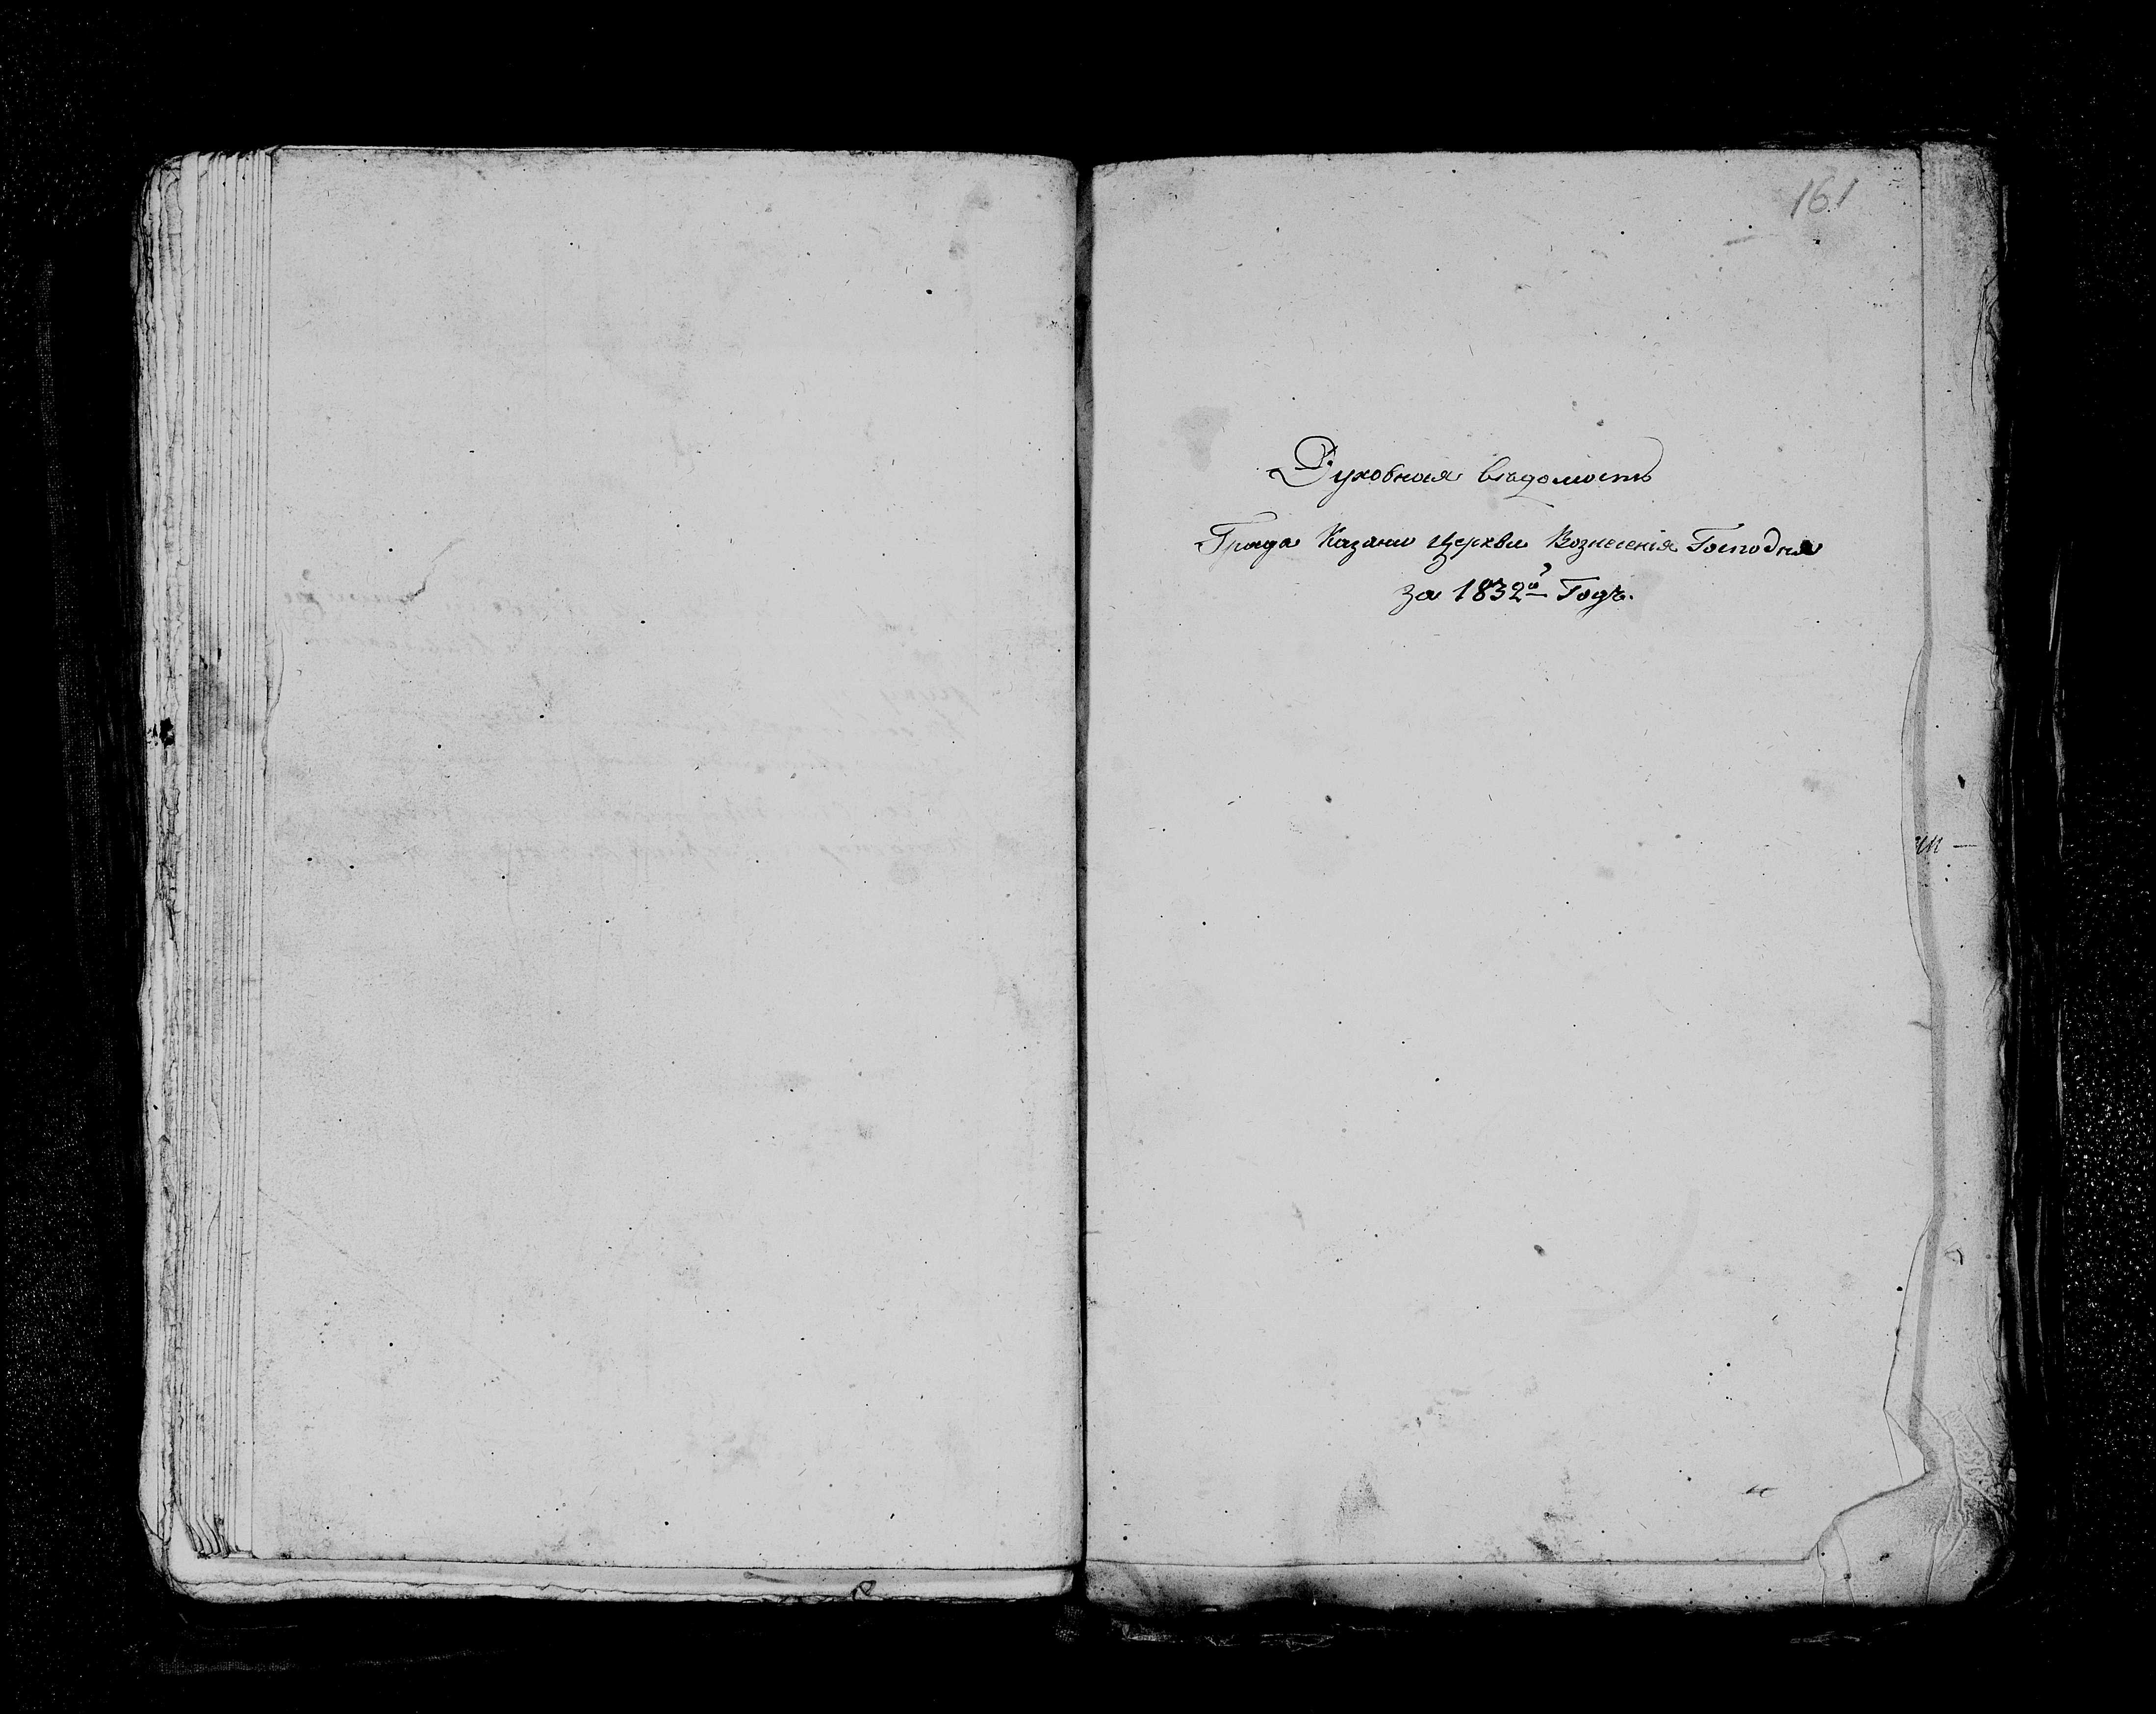 161
Духовная вѣдомость
Града Казани церкви Вознесенія Господня
за 1832й Годъ.